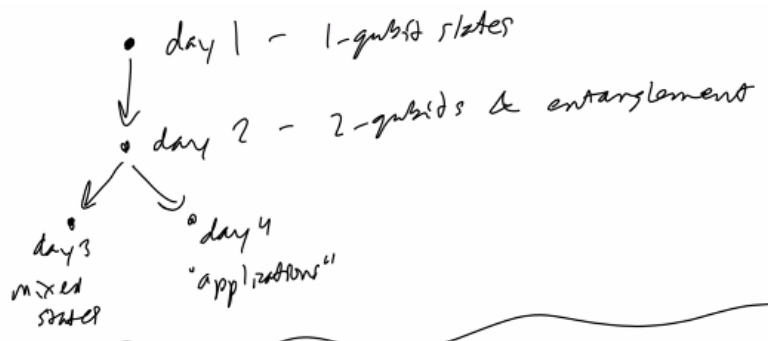 day 1 - 1-qubit states
day 2 - 2-qubits & entanglement
day 3
mixed
states
day 4
"applications"